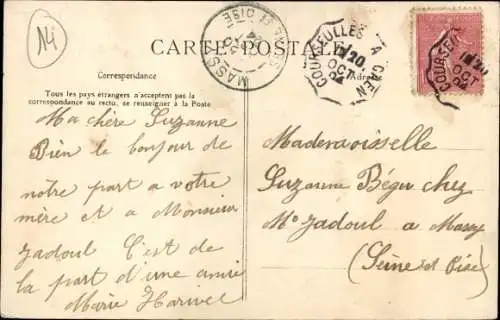 14
CARTE POSTALE
Correspondance
Adresse
Tous les pays étrangers n'acceptent pas la
correspondance au recto, se renseigner à la Poste
MASSY SEINE ET OISE
COURSEULLES A CAEN
1E/20
OCT
04
COURSEU
1E/20
OCT
04
Ma chère Suzanne
Bien le bonjour de
notre part a votre
mère et a Monsieur
Jadoul C'est de
la part d'une amie
Marie Harivel
Mademoisselle
Suzanne Bégu chez
Mr Jadoul a Massy
(Seine et Oise)